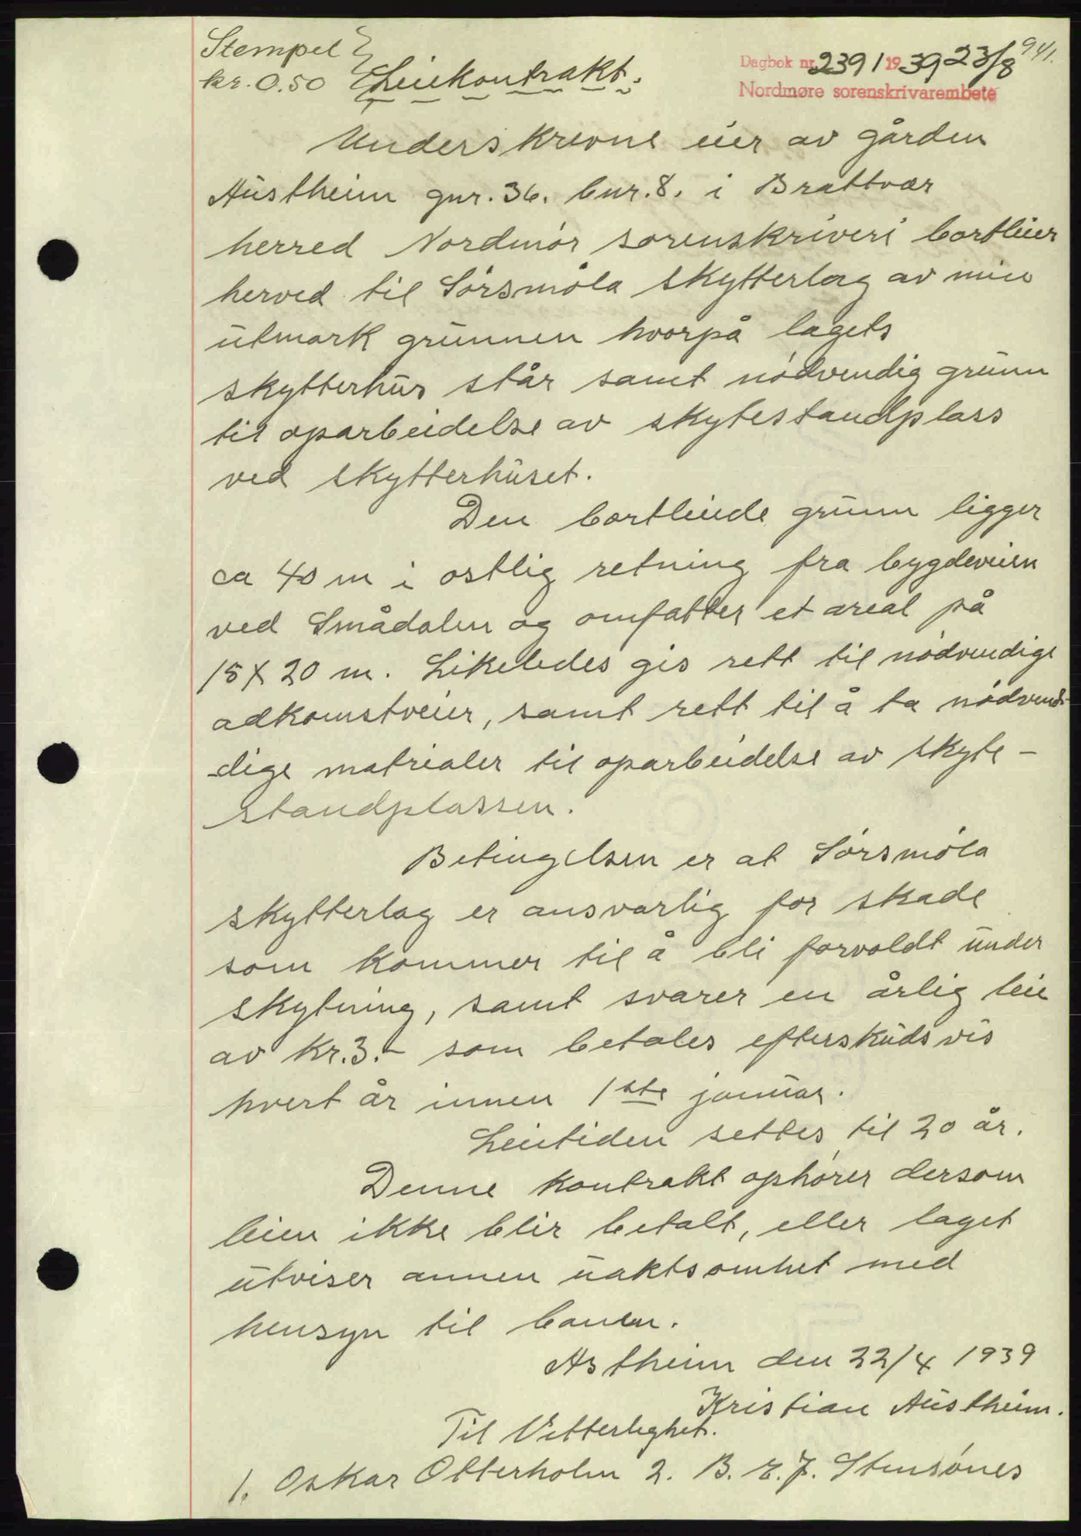 Stempel }
kr. 0.50 Leiekontrakt.
Dagbok nr. 2391 1939 23/8 941.
Nordmøre sorenskrivarembete
Underskrevne eier av gården
Austheim gnr. 36. bnr. 8. i Brattvær
herred Nordmør sorenskriveri bortleier
herved til Sørsmøla skytterlag av min
utmark grunnen hvorpå lagets
skytterhus står samt nødvendig grunn
til oparbeidelse av skytestandplass
ved skytterhuset.
Den bortleiede grunn ligger
ca 40 m i østlig retning fra bygdeveien
ved Smådalen og omfatter et areal på
15 x 20 m. Likeledes gis rett til nødvendige
adkomstveier, samt rett til å ta nødven-
-dige matrialer til oparbeidelse av skyte-
standplassen.
Betingelsen er at Sørsmøla
skytterlag er ansvarlig for skade
som kommer til å bli forvoldt under
skytning, samt svarer en årlig leie
av kr. 3.- som betales efterskudsvis
hvert år innen 1ste januar.
Leietiden settes til 20 år.
Denne kontrakt ophører dersom
leien ikke blir betalt, eller laget
utviser annen uaktsomhet med
hensyn til banen.
Astheim den 22/4 1939
Kristian Austheim.
Til Vitterlighet.
1. Oskar Otterholm 2. B. E. J. Stensønes